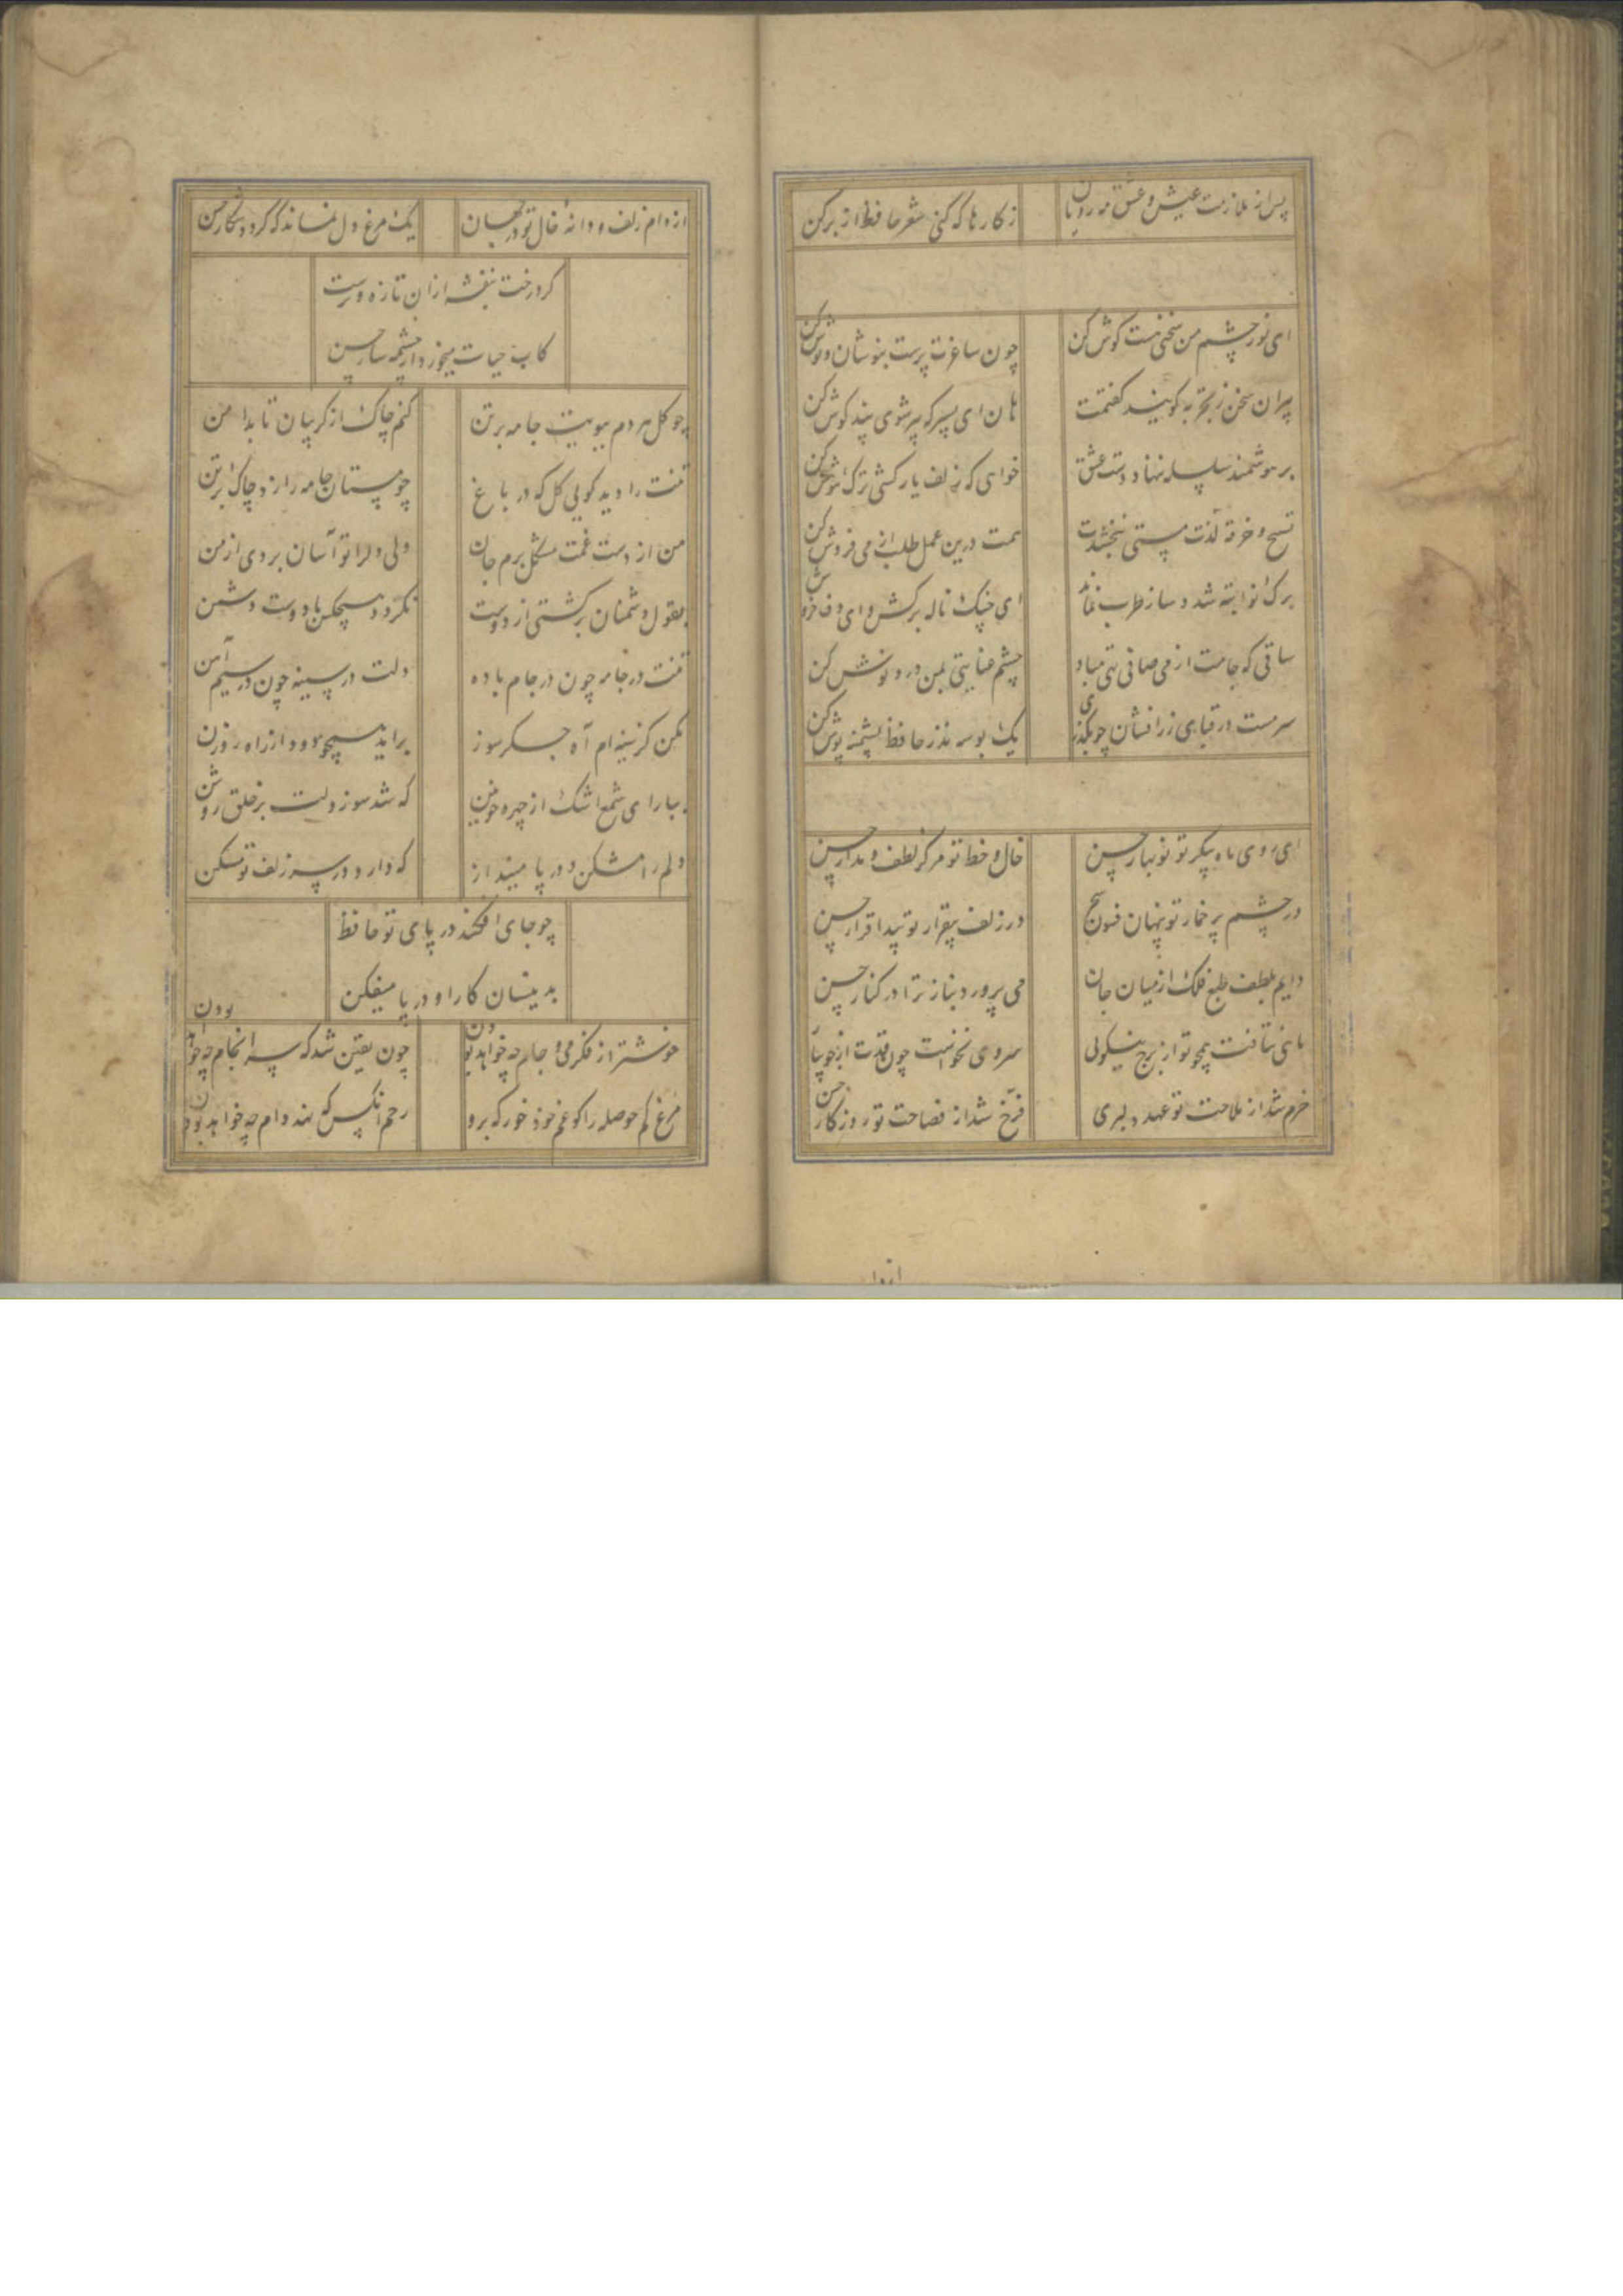 پس از ملازمت عیش و عشق مه رویان
ز کارها که کنی شعر حافظ از بر کن
ای نور چشم من سخنی هست کوش کن
چون ساغرت پرست بنوشان و نوش کن
پیران سخن ز تجربه کویند کفتمت
هان ای پسر که پیر شوی پند کوش کن
بر هوشمند سلسله ننهاد دست عشق
خواهی که زلف یار کشی ترک هوش کن
تسبیح و خرقه لذت مستی نبخشدت
همت درین عمل طلب از می فروش کن
برک نوا تبه شد و ساز طرب نماند
ای چنک ناله برکش و ای دف خروش
ساقی که جامت از می صافی تهی مباد
چشم عنایتی بمن درد نوش کن
سرمست در قبای زرافشان چو بگذری
یک بوسه نذر حافظ پشمینه پوش کن
ای روی ماه پیکر تو نوبهار حسن
خال و خط تو مرکز لطف و مدار حسن
در چشم پر خمار تو پنهان فسون سحر
در زلف بیقرار تو پیدا قرار حسن
دایم بلطف طبع فلک از میان جان
می پرورد بناز ترا در کنار حسن
ماهی نتافت همچو تو از برج نیکویی
سروی نخواست چون قدت از جویبار
خرم شد از ملاحت تو عهد دلبری
فرخ شد از فصاحت تو روزکار حسن
از دام زلف و دانهٔ خال تو در جهان
یک مرغ دل نماند که کردد شکار حسن
کرد رخت بنفشه از ان تازه و ترست
کاب حیات میخورد از چشمه سار حسن
چو کل هر دم ببویت جامه بر تن
کنم چاک از کریبان تا بدامن
تنت را دید کویی کل که در باغ
چو مستان جامه را زد چاک بر تن
من از دست غمت مشکل برم جان
ولی دل را تو آسان بردی از من
بقول دشمنان برکشتی از دوست
نکردد هیچکس با دوست دشمن
تنت در جامه چون در جام باده
دلت در سینه چون در سیم آهن
مکن کز سینه ام آه جگر سوز
براید همچو دود از راه روزن
ببار ای شمع اشک از چهره خونین
که شد سوز دلت بر خلق روشن
دلم را مشکن و در پا مینداز
که دارد در سر زلف تو مسکن
چو جای افکند در پای تو حافظ
بدینسان کار او در پا میفکن
خوشتر از فکر می و جام چه خواهد بودن
چون یقین شد که سر انجام چه خواهد بودن
مرغ کم حوصله را کو غم خود خور که برو
رحم انکس که نهد دام چه خواهد بودن
از دام